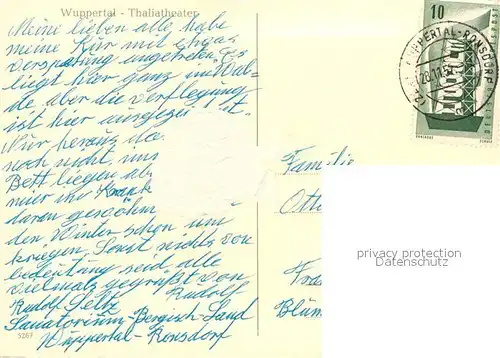 Wuppertal - Thaliatheater
Meine lieben alle, habe
meine Kur mit etwas
Verspätung angetreten. Es
liegt hier ganz im Wal-
de aber die Verpflegung
ist hier ausgezei st.
Nur heraus da
noch nicht, uns
Bett liegen ab
ihr Krank
daran gewöhn
den Winter schon um
kriegen. Sonst nichts von
bedeutung seid alle
vielmals gegrüßt von
Rudolf Rudolf
Sanatorium-Bergisch-Land
Wuppertal-Ronsdorf
5267
10
WUPPERTAL-RONSDORF
Familie
Otto
Blum
privacy protection
Datenschutz